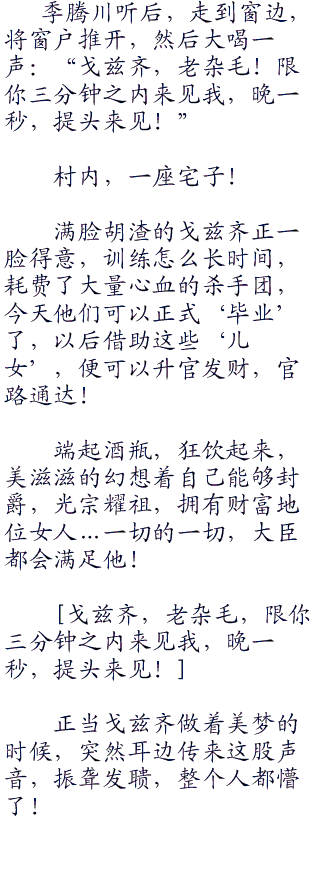 季腾川听后，走到窗边，
将窗户推开，然后大喝一
声：“戈兹齐，老杂毛！限
你三分钟之内来见我，晚一
秒，提头来见！”
村内，一座宅子！
满脸胡渣的戈兹齐正一
脸得意，训练怎么长时间，
耗费了大量心血的杀手团，
今天他们可以正式‘毕业’
了，以后借助这些‘儿
女’，便可以升官发财，官
路通达！
端起酒瓶，狂饮起来，
美滋滋的幻想着自己能够封
爵，光宗耀祖，拥有财富地
位女人…一切的一切，大臣
都会满足他！
[戈兹齐，老杂毛，限你
三分钟之内来见我，晚一
秒，提头来见！]
正当戈兹齐做着美梦的
时候，突然耳边传来这股声
音，振聋发聩，整个人都懵
了！